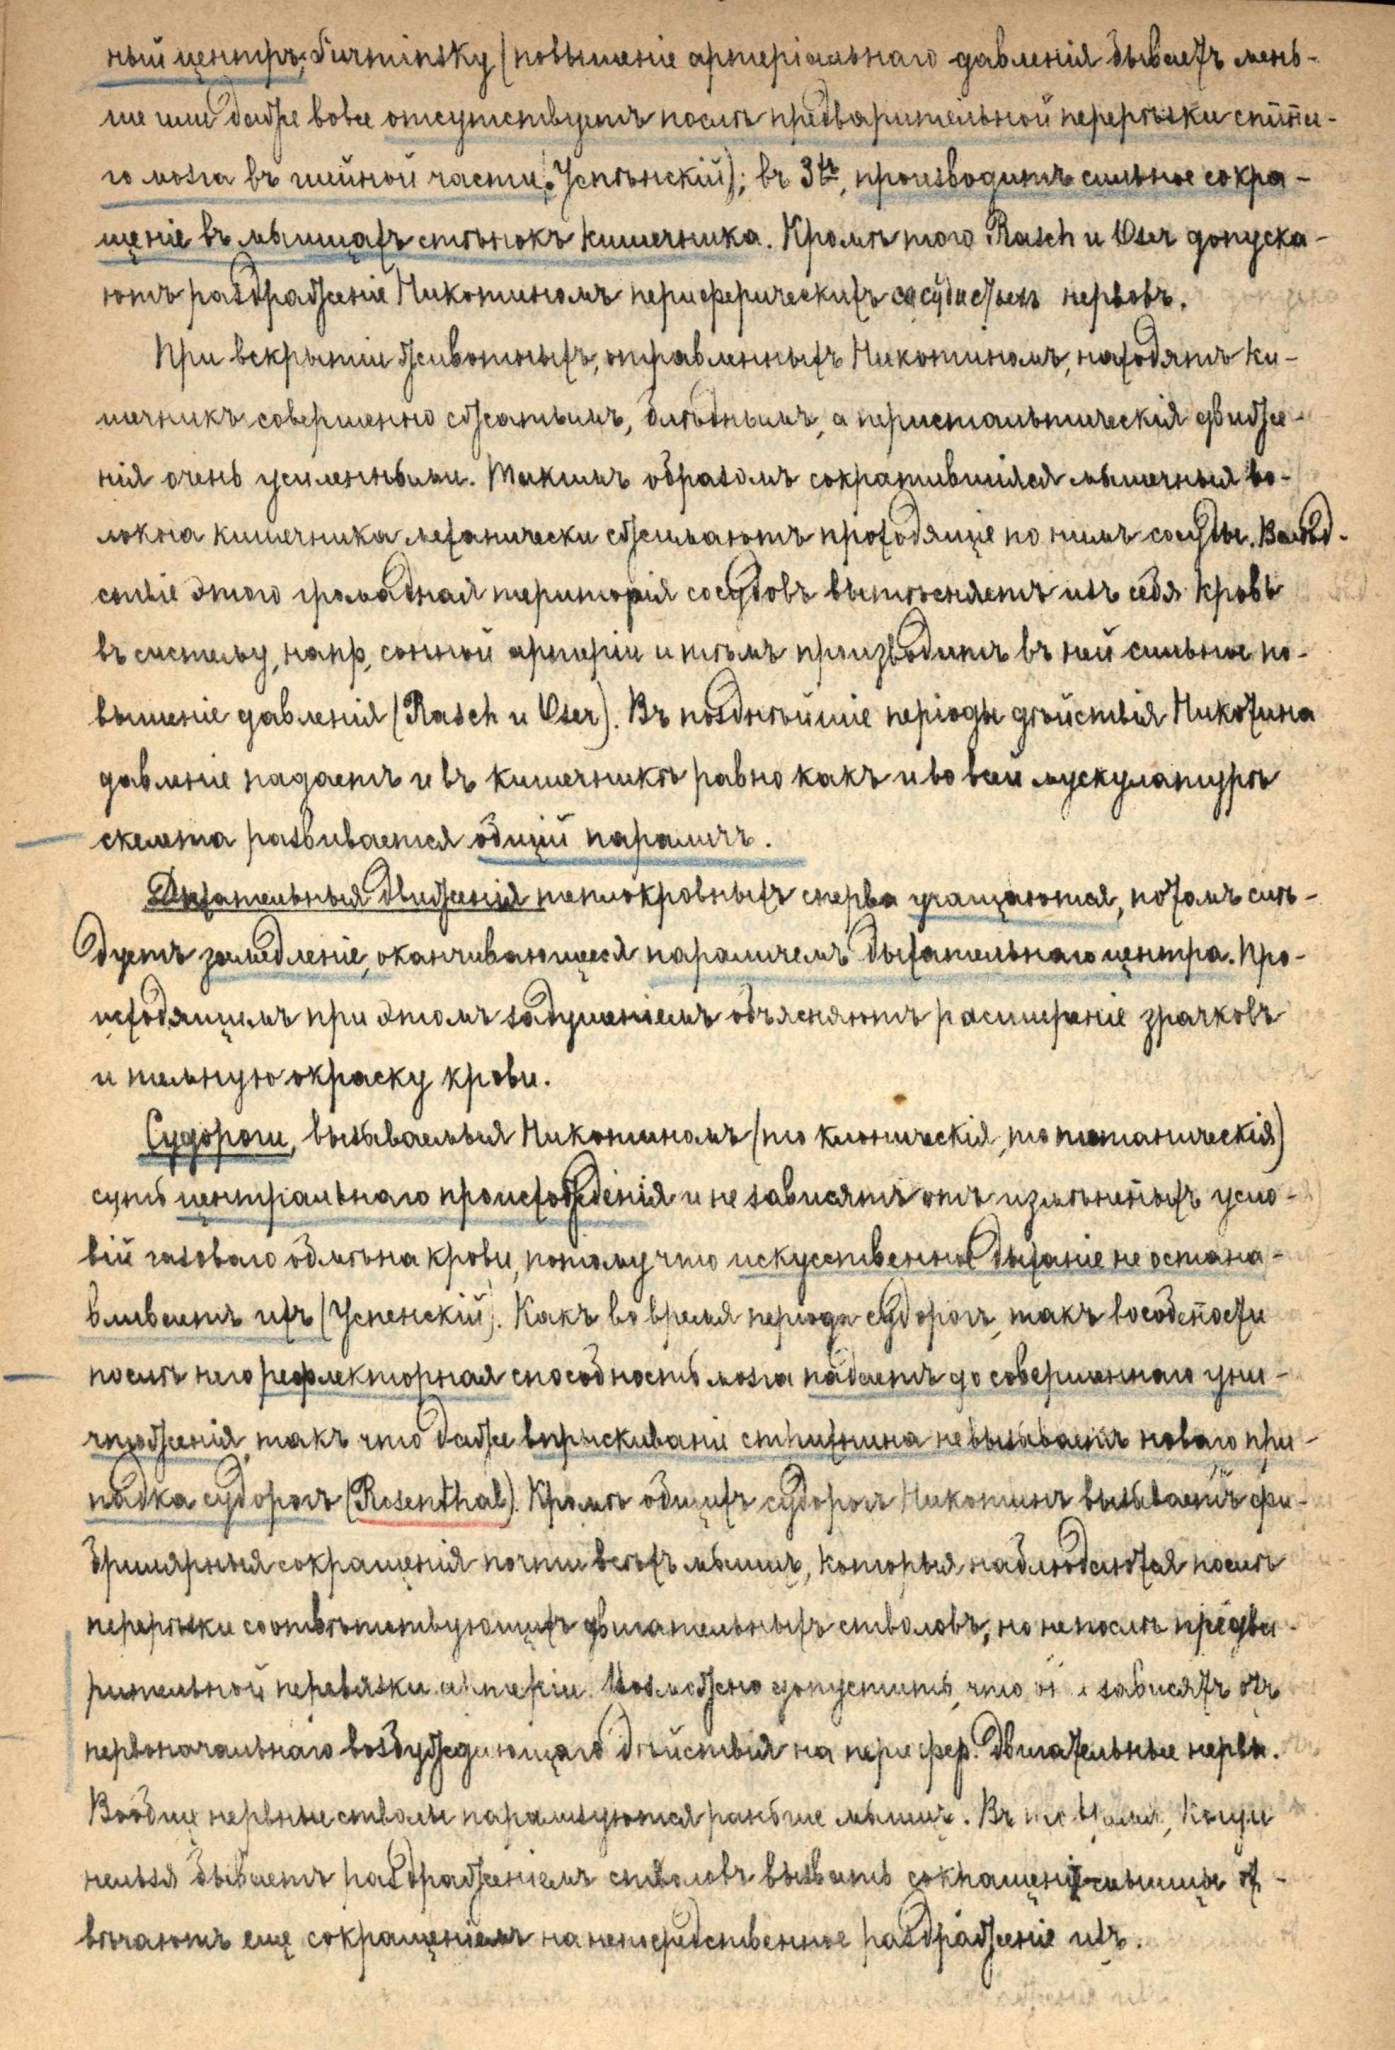 ный центръ; Surminsky (повышеніе артеріальнаго давленія бываетъ мень-
ше или даже вовсе отсутствуетъ послѣ предварительной перерѣзки спин-
го мозга въ шейной части. Успѣнскій); въ 3хъ, производитъ сильное сокра-
щеніе въ мышцахъ стѣнокъ кишечника. Кромѣ того Rasch и Oser допуска-
ютъ раздраженіе Никотиномъ периферическихъ сосудистыхъ нервовъ.
При вскрытіи животныхъ, отравленныхъ Никотиномъ, находятъ ки-
шечникъ совершенно сжатымъ, блѣднымъ, а перистальтическія движе-
нія очень усиленными. Такимъ образомъ сократившіяся мышечныя во-
локна кишечника механически сжимаютъ проходящіе по нимъ сосуды. Вслѣд-
ствіе этого громадная територія сосудовъ вытѣсняетъ изъ себя кровь
въ систему, напр, сонной артеріи и тѣмъ производитъ въ ней сильное по-
вышеніе давленія (Rasch и Oser). Въ позднѣйшіе періоды дѣйствія Никотина
давленіе падаетъ и въ кишечникѣ равно какъ и во всей мускулатурѣ
скелета развивается общій параличъ.
Дыхательныя движенія теплокровныхъ сперва учащаются, потомъ слѣ-
дуетъ замедленіе, оканчивающееся параличемъ дыхательнаго центра. Про-
исходящимъ при этомъ задушеніемъ объясняютъ расширеніе зрачковъ
и темную окраску крови.
Судороги, вызываемыя Никотиномъ (то клоническія, то тетаническія)
суть центральнаго происхожденія и не зависятъ отъ измѣненныхъ усло-
вій газоваго обмѣна крови, потому что искусственное дыханіе не остана-
вливаетъ ихъ (Успенскій). Какъ во время періода судорогъ, такъ въ особенности
послѣ него рефлекторная способность мозга падаетъ до совершеннаго уни-
чтоженія, такъ что даже впрыскиваніе стрихнина не вызываетъ новаго при-
падка судорогъ (Rosenthal). Кромѣ общихъ судорогъ Никотинъ вызываетъ фи-
брилярныя сокращенія почти всѣхъ мышцъ, которыя наблюдаются послѣ
перерѣзки соотвѣтствующихъ двигательныхъ стволовъ, но не послѣ предва-
рительной перевязки артеріи. Возможно допустить, что они зависятъ отъ
первоначальнаго возбуждающаго дѣйствія на перифер. двигательные нервы.
Вообще нервные стволы парализуются раньше мышцъ. Въ то время, когда
нельзя бываетъ раздраженіемъ стволовъ вызвать сокращеніе мышцы от-
вѣчаютъ еще сокращеніемъ на непосредственное раздраженіе ихъ.